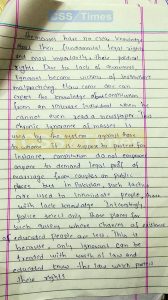 CSS/Times
themasses have no clear knowledge
about their fundamental legal rights
and most importantly their political
rights. Due to lack of awareness
ignorant become victims of institutional
malpractices. How come one can
expect the knowledge of constitution
from an illiterate individual when he
cannot even read a newspaper
chronic ignorance of masses is
used by the system against those
to whom it is suppose to protect for
instance, constitution do not empower
anyone to demand legal proof of
marriage from couples on public
places but in Pakistan, such tactics
are used to intimidate people
with lack knowledge. Interestingly,
police select only those places for
such where chances of existence
of educated people are less. This is
because only ignorant can be
treated with wrath of law and
educated know the law which protect
their rights.